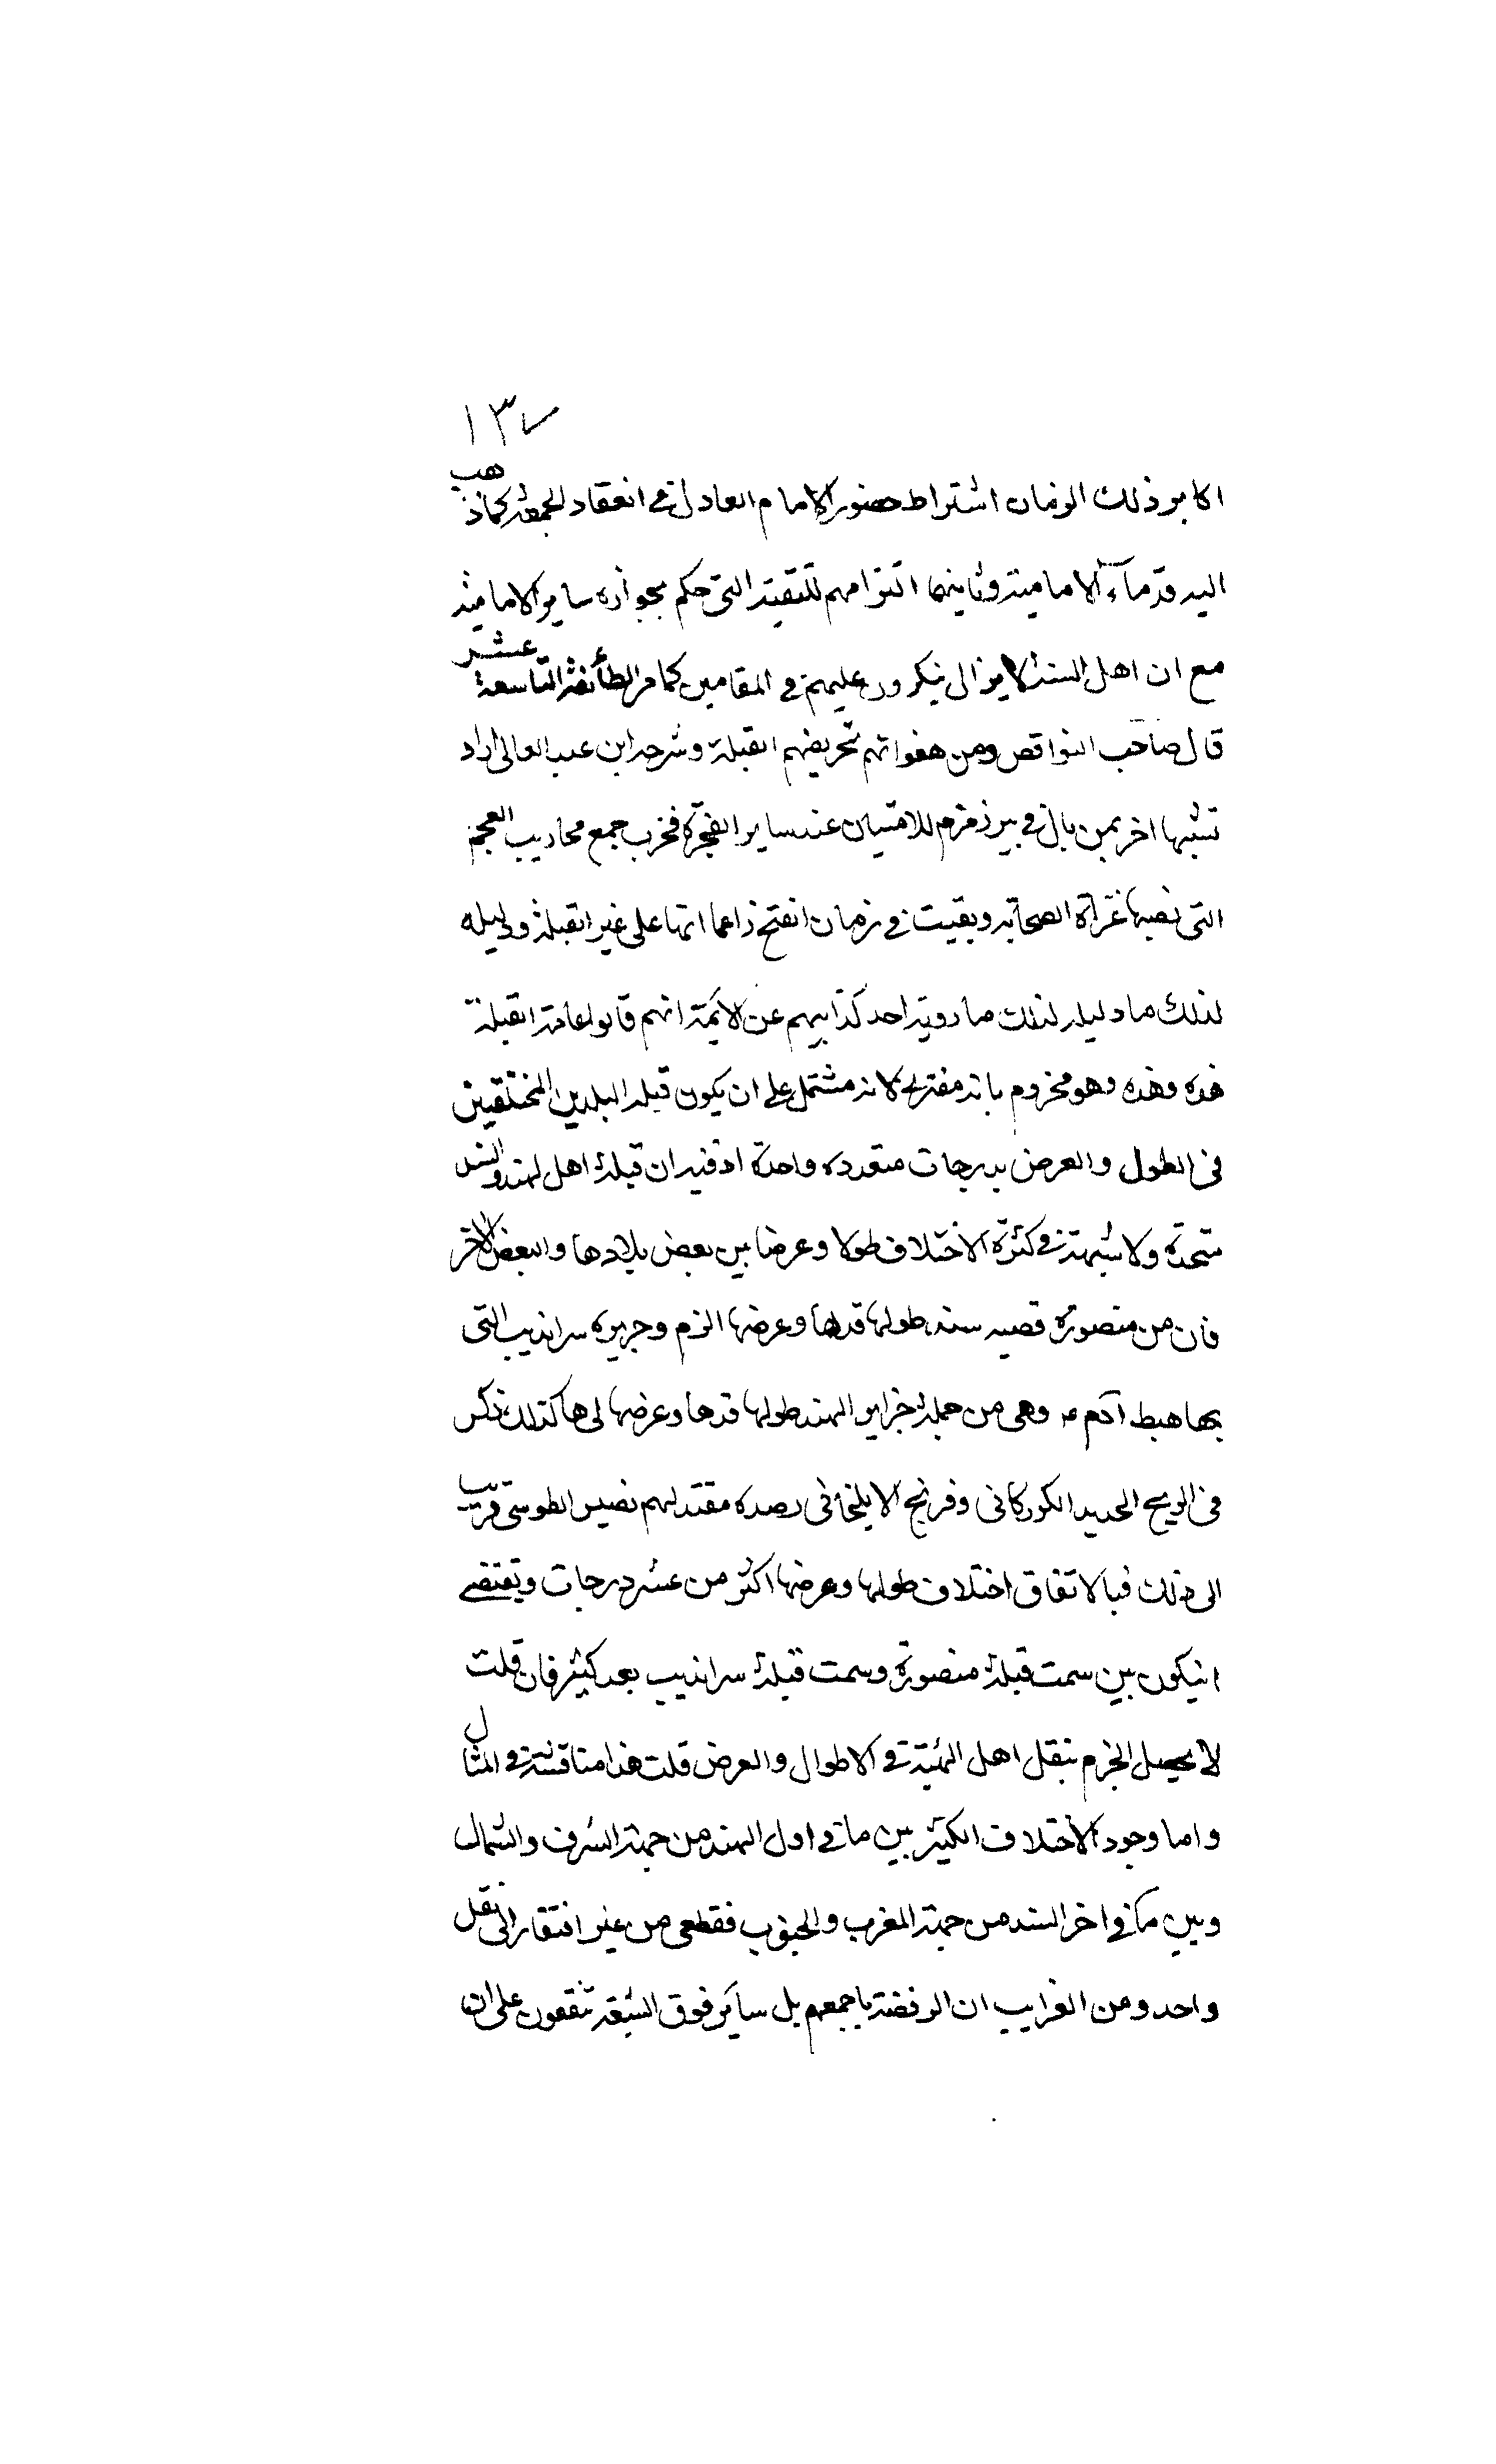 ١٣٧
اكابر ذلك الزمان اشتراط حضور الامام العادل في انعقاد الجمعة كما ذهب
اليه قدمآء الامامية وثانيهما التزامهم للتقية التي حكم بجوازه ساير الامامية
مع ان اهل السنة لا يزال ينكرون عليهم في المقامين كما مر الطائفة التاسعة عشر
قال صاحب النواقض ومن هفواتهم تحريفهم القبلة وشرحه ابن عبد العالى اراد
تشبها اخر بمن بال في بير زمزم للامتياز عند ساير الفجرة فخرب جمع محاريب العجم
التى نصبها غزاة الصحابة وبقيت في زمان الفتح زاعما انها على غير القبلة ودليله
لذلك ما دليله لذلك ما رويه احد كذابيهم عن الائمة انهم قالوا علامة القبلة
هذه وهذه وهو مخروم بانه مفترى لانه مشتمل على ان يكون قبلة البلدين المختلفين
فى الطول والعرض بدرجات متعدده واحدة اذ فيه ان قبلة اهل الهند والسند
متحدة ولا شبهة في كثرة الاختلاف طولا وعرضا بين بعض بلادها والبعض الاخر
فان من منصورة قصبه سند طولها قدها وعرضها الزم وجزيره سرانديب التى
بها هبط آدم ع وهى من جملة جزاير الهند طولها قدها وعرضها لى ها كذلك ذكر
فى الزيج الجديد الكوركانى وفى زيج الايلخانى رصده مقتدلهم نصير الطوسى قريب
الى ذلك فبالاتفاق اختلاف طولها وعرضها اكثر من عشر درجات ويقتضى
انيكون بين سمت قبلة منصورة وسمت قبلة سرانديب بعد كثير فان قلت
لا يحصل الجزم بنقل اهل الهيئة في الاطوال والعرض قلت هذا مناقشة في المثال
واما وجود الاختلاف الكثير بين ما في اول الهند من جهة الشرف والشمال
وبين ما في اخر السند من جهة المغرب والجنوب فقطعى من غير افتقار الى نقل
واحد ومن الغرايب ان الرفضة باجمعهم بل سائر فوق الشيعة متفقون على ان